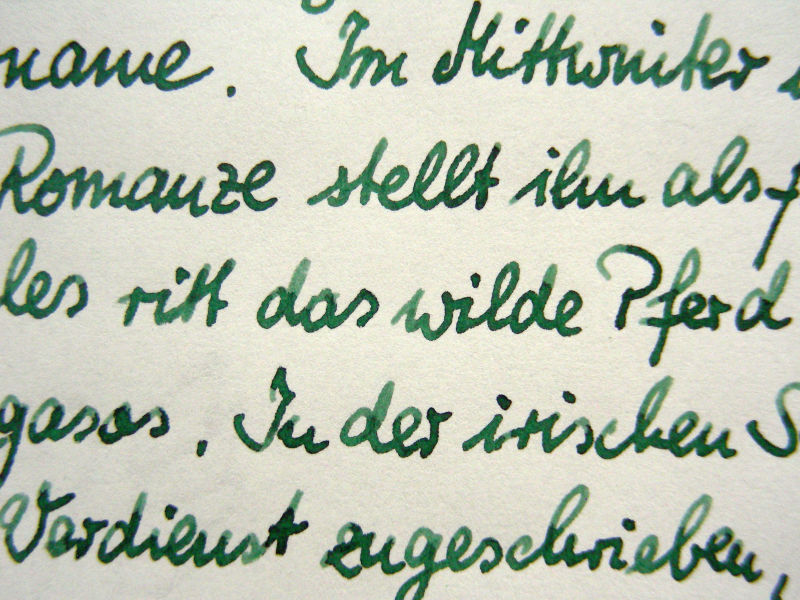 name. Im Mittwinter
Romanze stellt ihn als
les ritt das wilde Pferd
gasos. In der irischen S
Verdienst zugeschrieben,